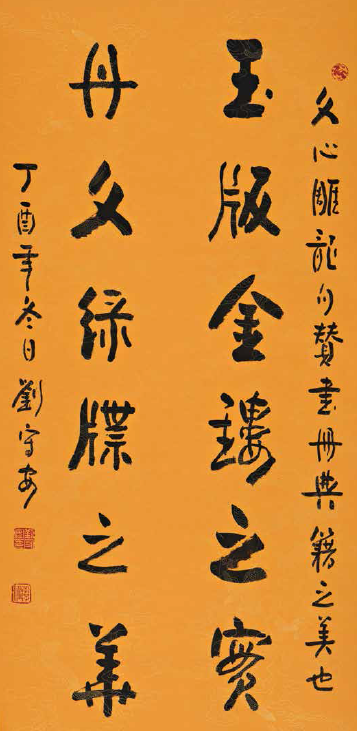 文心雕龍句贊書冊典籍之美也
玉版金鏤之實
丹文綠牒之華
丁酉年冬日劉守安